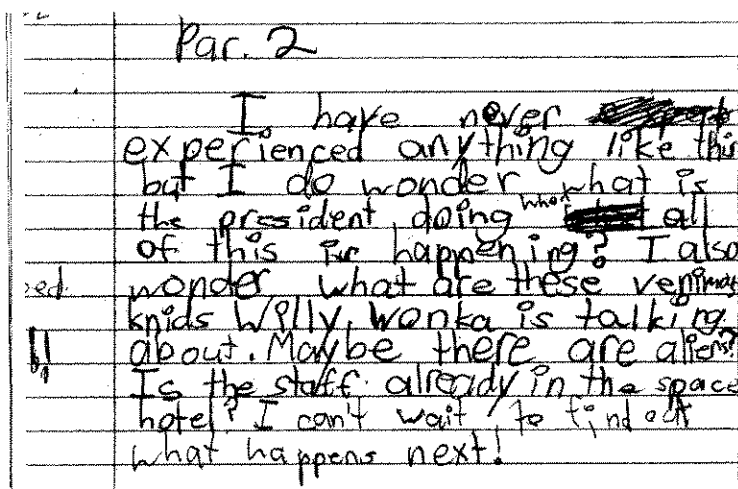 Par. 2
I have never
experienced anything like this
but I do wonder what is
the president doing when all
of this is happening? I also
wonder what are these
knids Willy Wonka is talking
about. Maybe there are aliens?
Is the staff already in the space
hotel? I can't wait to find out
what happens next!